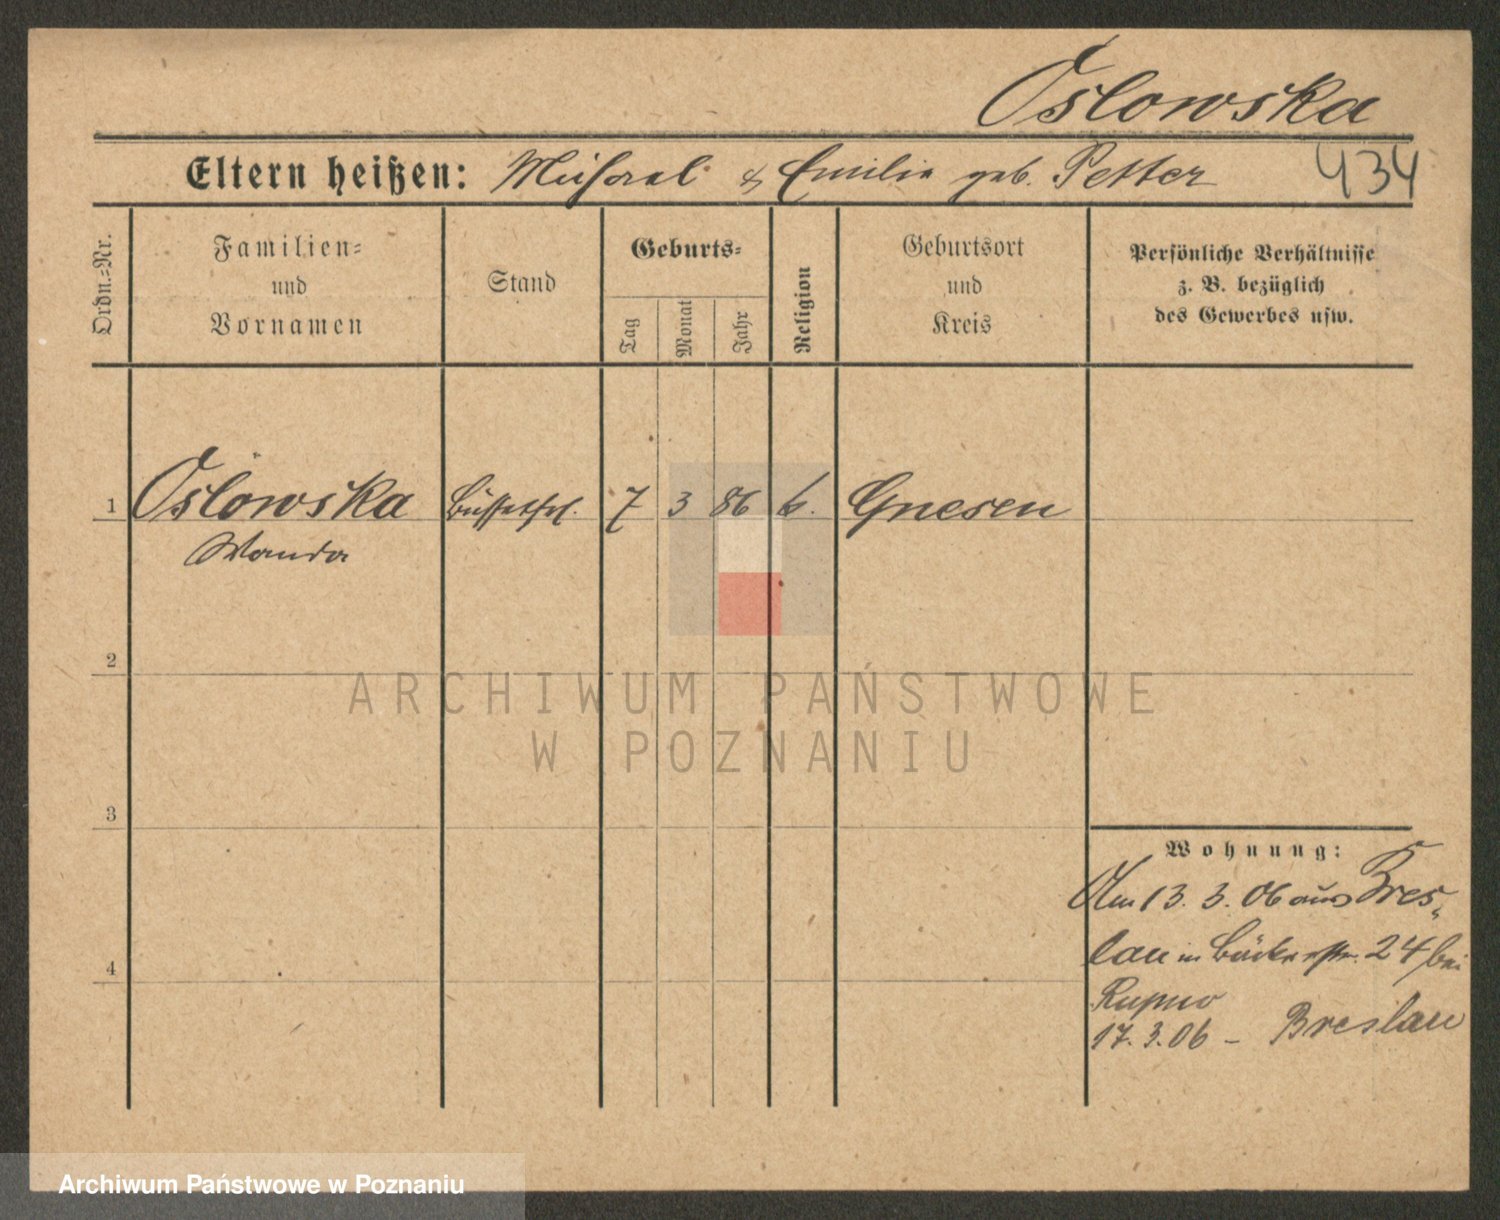 Oslowska
Eltern heißen: Michael & Emilie geb. Petter 434
Ordn.-Nr.
Familien-
und
Vornamen
Stand
Geburts-
Tag
Monat
Jahr
Religion
Geburtsort
und
Kreis
Persönliche Verhältnisse
z. B. bezüglich
des Gewerbes usw.
1 Oslowska Büffetfrl. 7 3 86 k. Gnesen
Wanda
2
ARCHIWUM PAŃSTWOWE
W POZNANIU
3
Wohnung:
Am 13. 3. 06 aus Bres-
lau in Bäckerstr. 24 bei
4
17. 3. 06 - Breslau
Archiwum Państwowe w Poznaniu